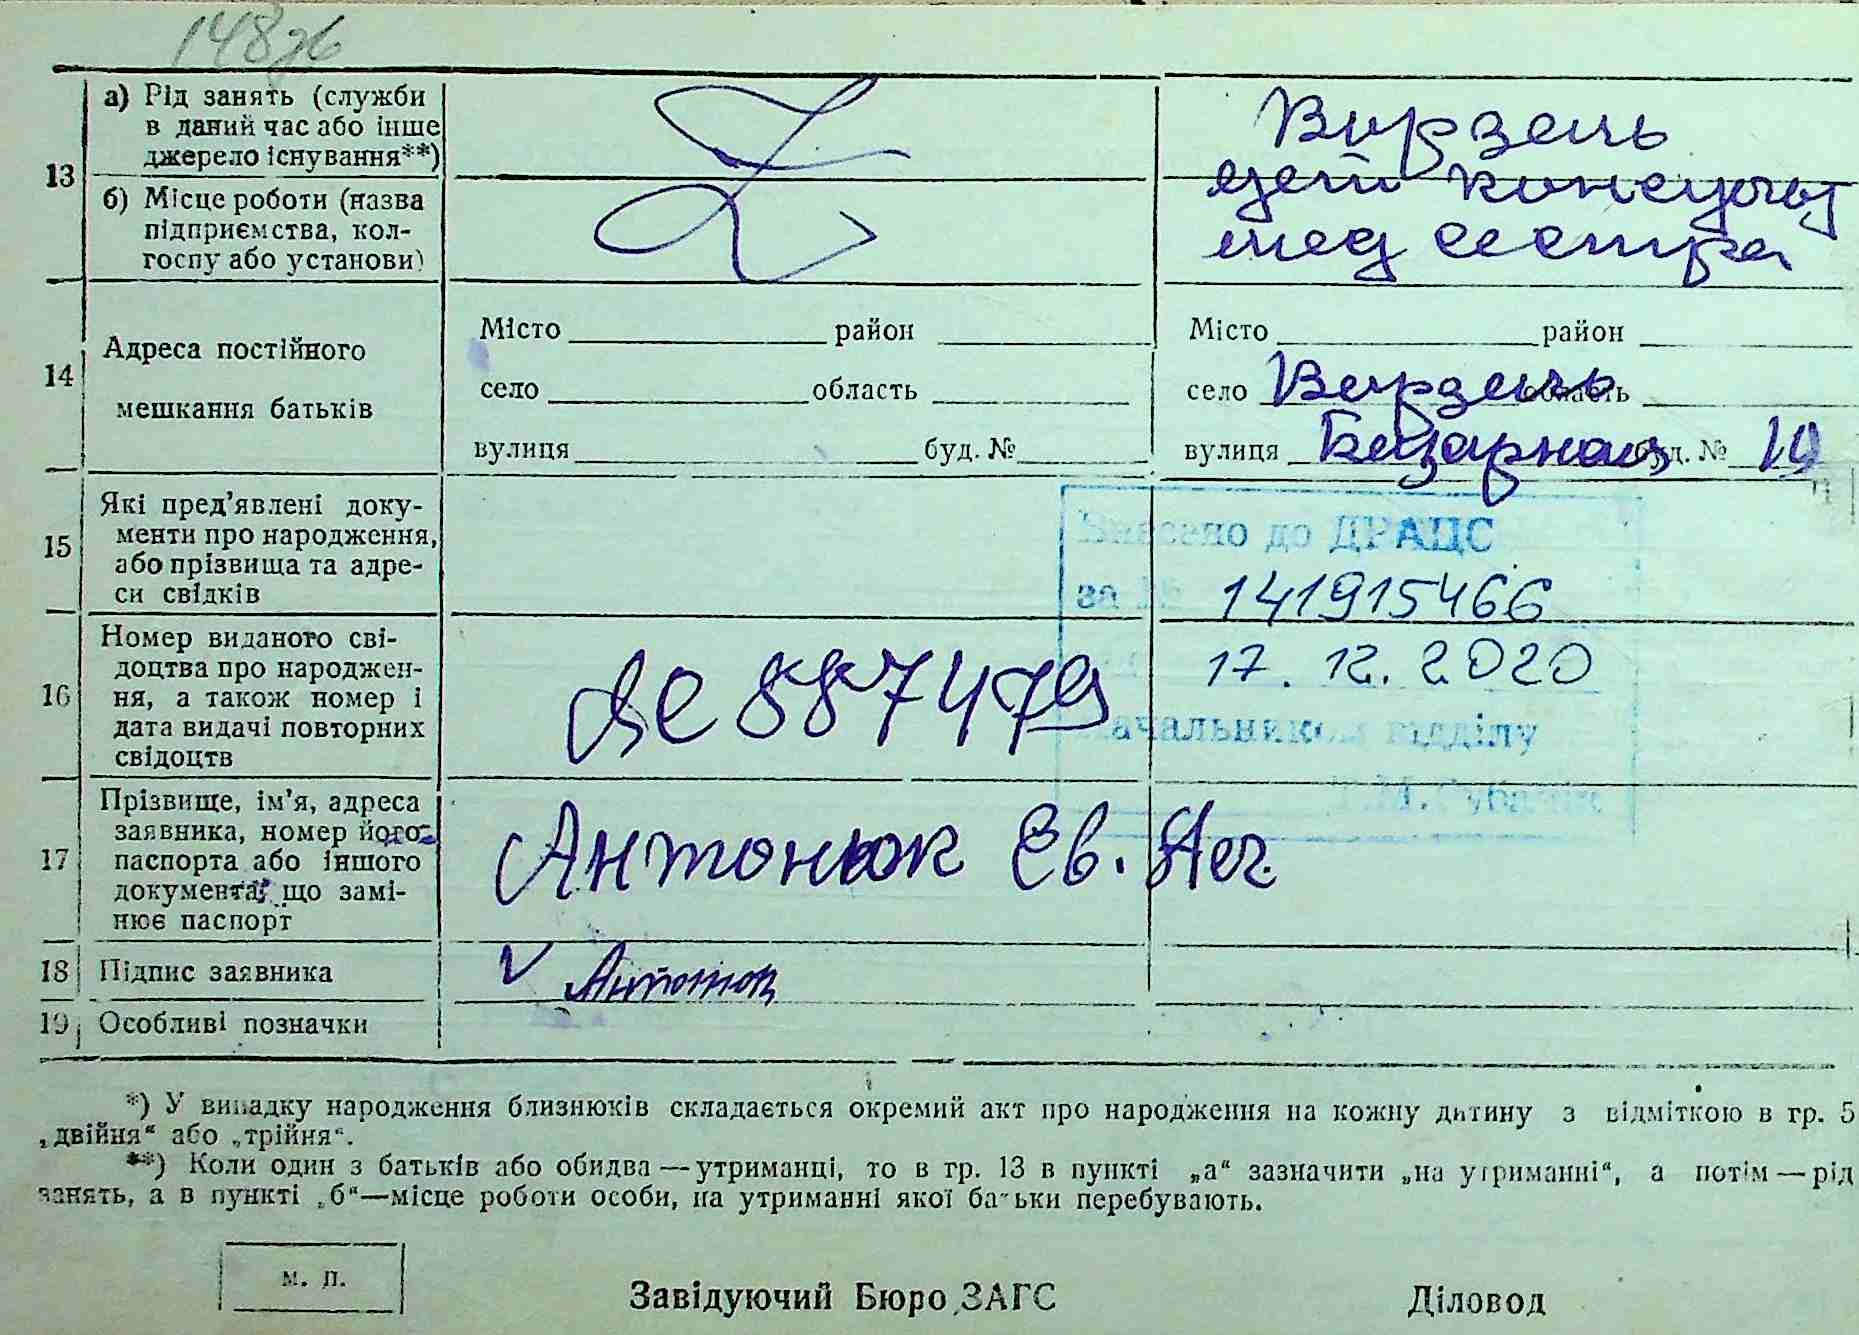 148
13 а) Рід занять (служби
в даний час або інше
джерело існування**)
б) Місце роботи (назва
підприємства, кол-
госпу або установи)
мед сестра
14 Адреса постійного
мешкання батьків
Місто район
село область
вулиця буд. №
Місто район
село область
вулиця Базарная буд. № 19
15 Які пред'явлені доку-
менти про народження,
або прізвища та адре-
си свідків
Внесено до ДРАЦС
за № 141915466
17.12.2020
Начальником відділу
Т.М.
16 Номер виданого сві-
доцтва про народжен-
ня, а також номер і
дата видачі повторних
свідоцтв
887479
17 Прізвище, ім'я, адреса
заявника, номер його
паспорта або іншого
документа, що замі-
нює паспорт
Антонюк Ев.
18 Підпис заявника
V Антонюк
19 Особливі позначки
*) У випадку народження близнюків складається окремий акт про народження на кожну дитину з відміткою в гр. 5
„двійня“ або „трійня“.
**) Коли один з батьків або обидва — утриманці, то в гр. 13 в пункті „а“ зазначити „на утриманні“, а потім — рід
занять, а в пункті „б“—місце роботи особи, на утриманні якої батьки перебувають.
м. п.
Завідуючий Бюро ЗАГС
Діловод